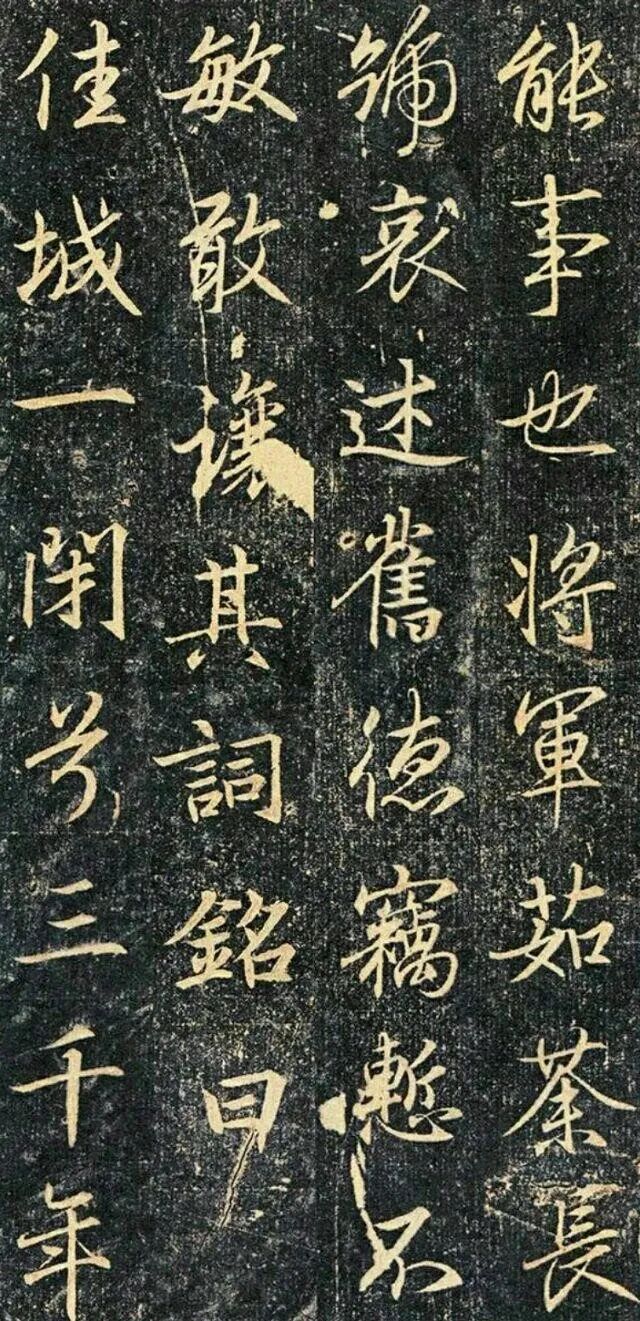 能事也將軍茹荼長
號哀述舊德竊慙不
敏敢讓其詞銘曰
佳城一閉兮三千年